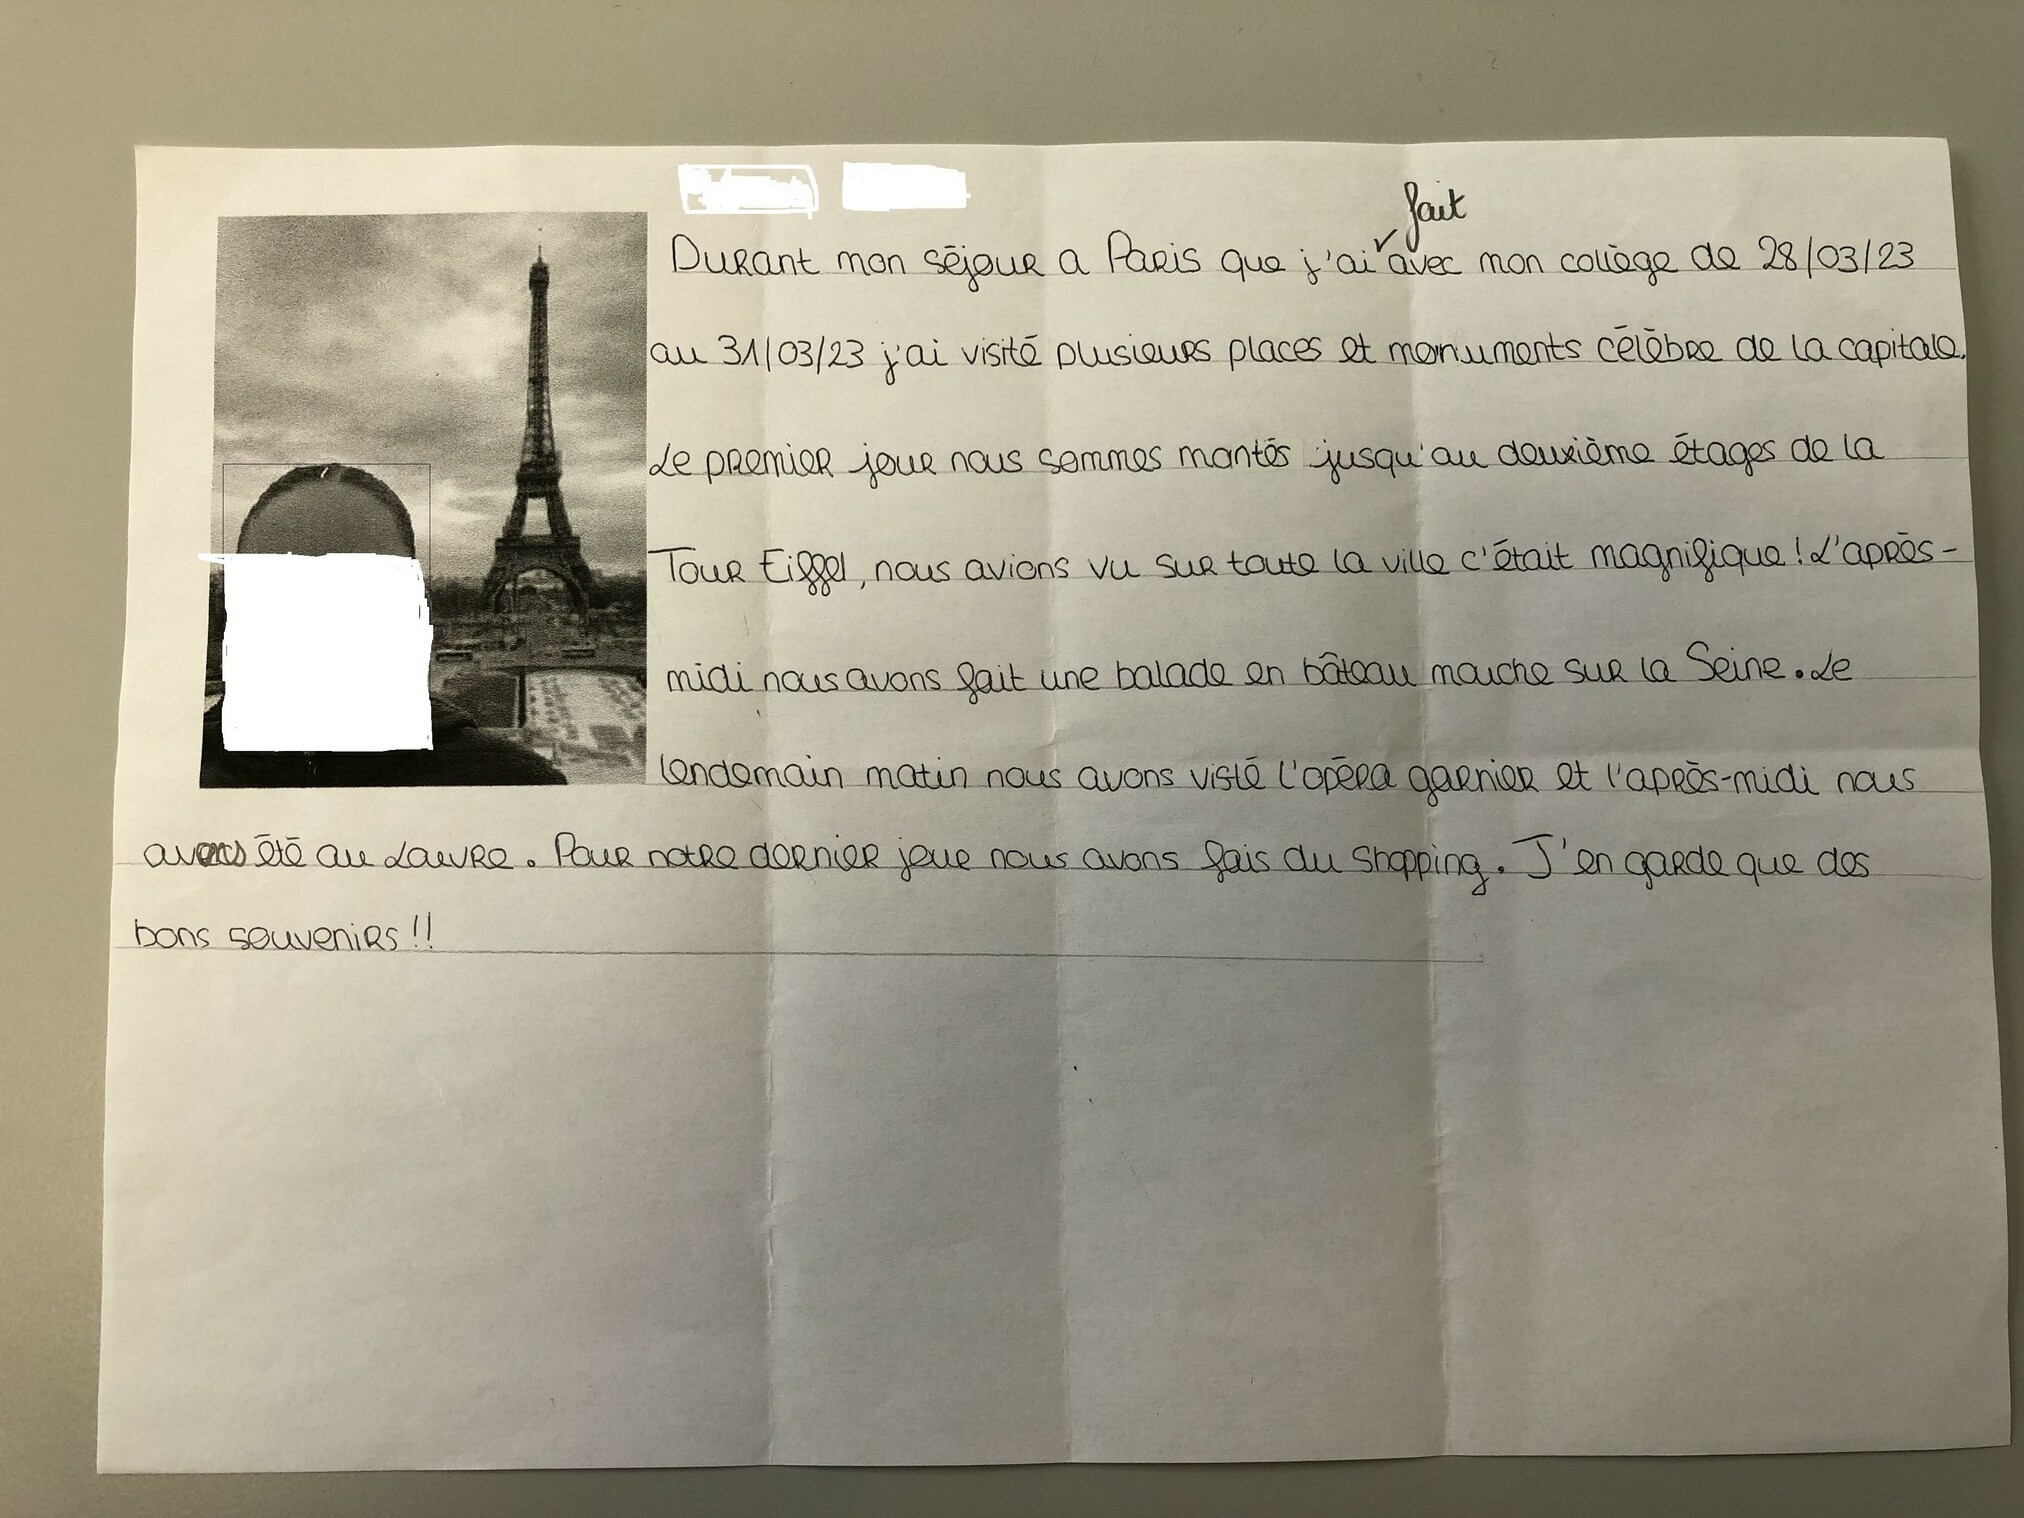 fait
Durant mon séjour a Paris que j'ai avec mon collège de 28/03/23
au 31/03/23 j'ai visité plusieurs places et monuments célèbre de la capitale.
Le premier jour nous sommes montés jusqu'au deuxième étages de la
Tour Eiffel, nous avions vu sur toute la ville c'était magnifique ! L'après-
midi nous avons fait une balade en bâteau mouche sur la Seine. Le
lendemain matin nous avons visté l'opéra garnier et l'après-midi nous
avons été au Louvre. Pour notre dernier jour nous avons fais du shopping. J'en garde que des
bons souvenirs !!